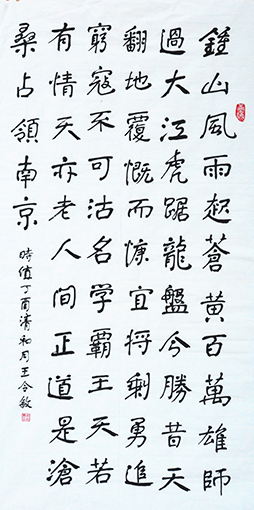 鍾山風雨起蒼黃百萬雄師
過大江虎踞龍盤今勝昔天
翻地覆慨而慷宜將剩勇追
窮寇不可沽名学霸王天若
有情天亦老人間正道是滄
桑占領南京
時值丁酉清和月王令敏